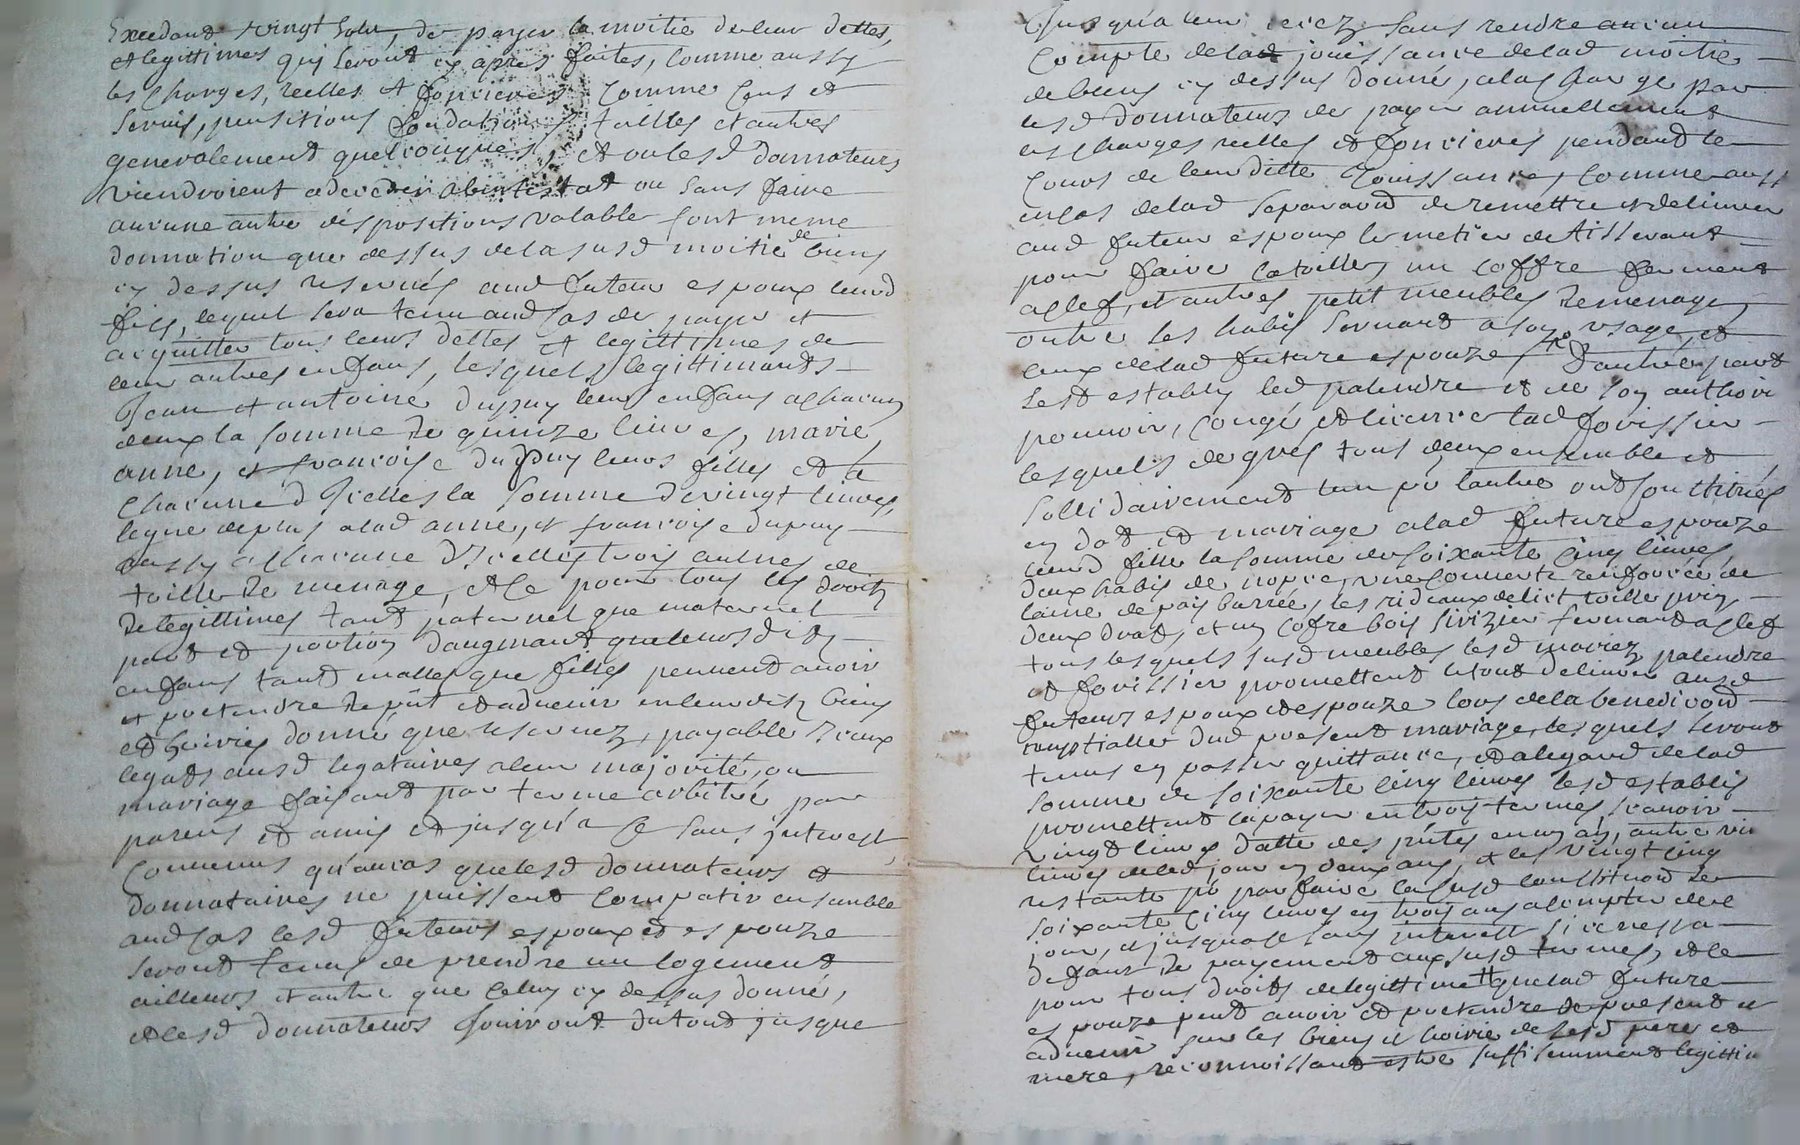 Excedant vingt sols, de payer la moitié de leur dettes,
et legittimes qui seront cy apres faites, comme aussy
les charges, reelles et foncieres comme cens et
servis, pensitions fondations tailles et autres
generalement quelconques, et ou lesd donnateurs
viendroient a deceder abintestat ou sans faire
aucune autre dispositions valable font meme
donnation que dessus de la susd moitié de biens
cy dessus reservés aud futeur espoux leurd
fils, lequel sera tenu aud cas de payer et
acquitter tous leurs dettes et legittimes de
leur autres enfans, lesquels legittimants
Jean et antoine dupuy leur enfans a chacun
deux la somme de quinze livres, marie,
anne, et francoise dupuy leurs filles et a
chacune d'Icelles la somme de vingt livres,
legue deplus alad anne, et francoise dupuy
aussy a chacune d'Icelles trois aulnes de
toille de menage, et ce pour tous les droits
de legittimes tant paternel que maternel
part et portion daugmant que leurs dits
enfans tant malles que filles peuvent avoir
et pretendre de pnt et advenir en leurdits biens
et hoiries donné que reservez, payable Iceux
legats ausd legataires a leur majorité, ou
mariage faisant par terme arbitré par
parens et amis et jusqu'a ce sans interest,
convenus qu'au cas que lesd donnateurs et
donnataires ne puissent compatir ensemble
aud cas lesd futeurs espoux et espouze
seront tenus de prendre un logement
ailleurs et autre que celuy cy dessus donné,
et lesd donnateurs Jouiront du tout jusque
Jusqu'a leur decez sans rendre aucun
compte de lad jouissance de lad moitié
de biens cy dessus donné, a la charge par
lesd donnateurs de payer annuellement
les charges reelles et foncieres pendant le
cours de leur ditte Jouissance, comme aussy
en cas de lad separaon de remettre et delivrer
aud futeur espoux le metier de tisserant
pour faire la toille, un coffre fermant
a clef, et autres petit meubles de menage,
outre les habis servant a son usage, et
ceux de lad future espouze d'autre part
s'est estably led palendre et de son authorité
pouvoir, congé et licence lad forissier
lesquels de gres tous deux ensemble et
sollidairement l'un po l'autre ont constitués
en dot et mariage a lad future espouze
leurd fille la somme de soixante cinq livres
deux habis de noce, une couverte renforcée de
laine de pais barrée, les rideaux de lict toille prin
deux drats, et un cofre bois sirizier fermant a clef
tous lesquels susd meubles lesd mariez palendre
et forissier promettent le tout delivrer ausd
futeurs espoux et espouze lors de la benediction
nuptialle dud present mariage, lesquels seront
tenus en passer quittance, et a legard de lad
somme de soixante cinq livres lesd establis
promettent la payer en trois termes scavoir
vingt livres datte des pntes en un an, autre vingt
livres dud jour en deux ans, et les vingt cinq
restante po parfaire la susd constituon de
soixante cinq livres en trois ans a compter de ce
jour, et jusqua ce sans interest si ce nest a
defaut de payement aux susd termes, et ce
pour tous droits de legittime que lad future
espouze peut avoir et pretendre de present et
advenir sur les biens et hoirie de sesd pere et
mere, reconnoissant estre suffisemment legittimée